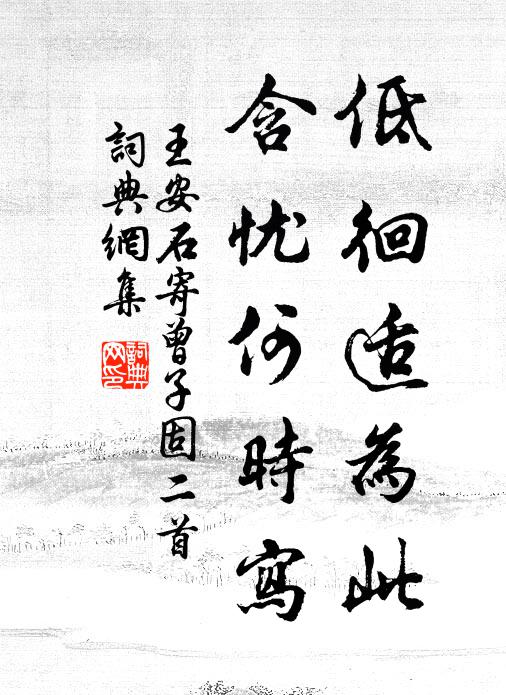 低徊适為此
含忧何時寫
王安石寄曾子固二首
詞典網集
詞典
网印